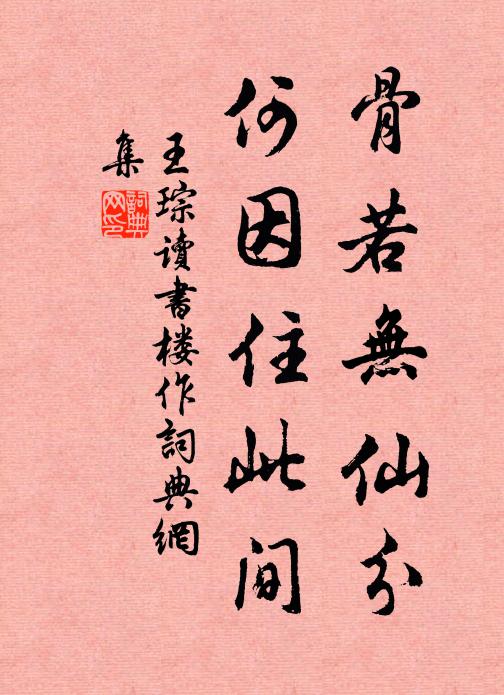 骨若無仙分
何因住此間
王琮讀書楼作詞典網
集
詞典
网印